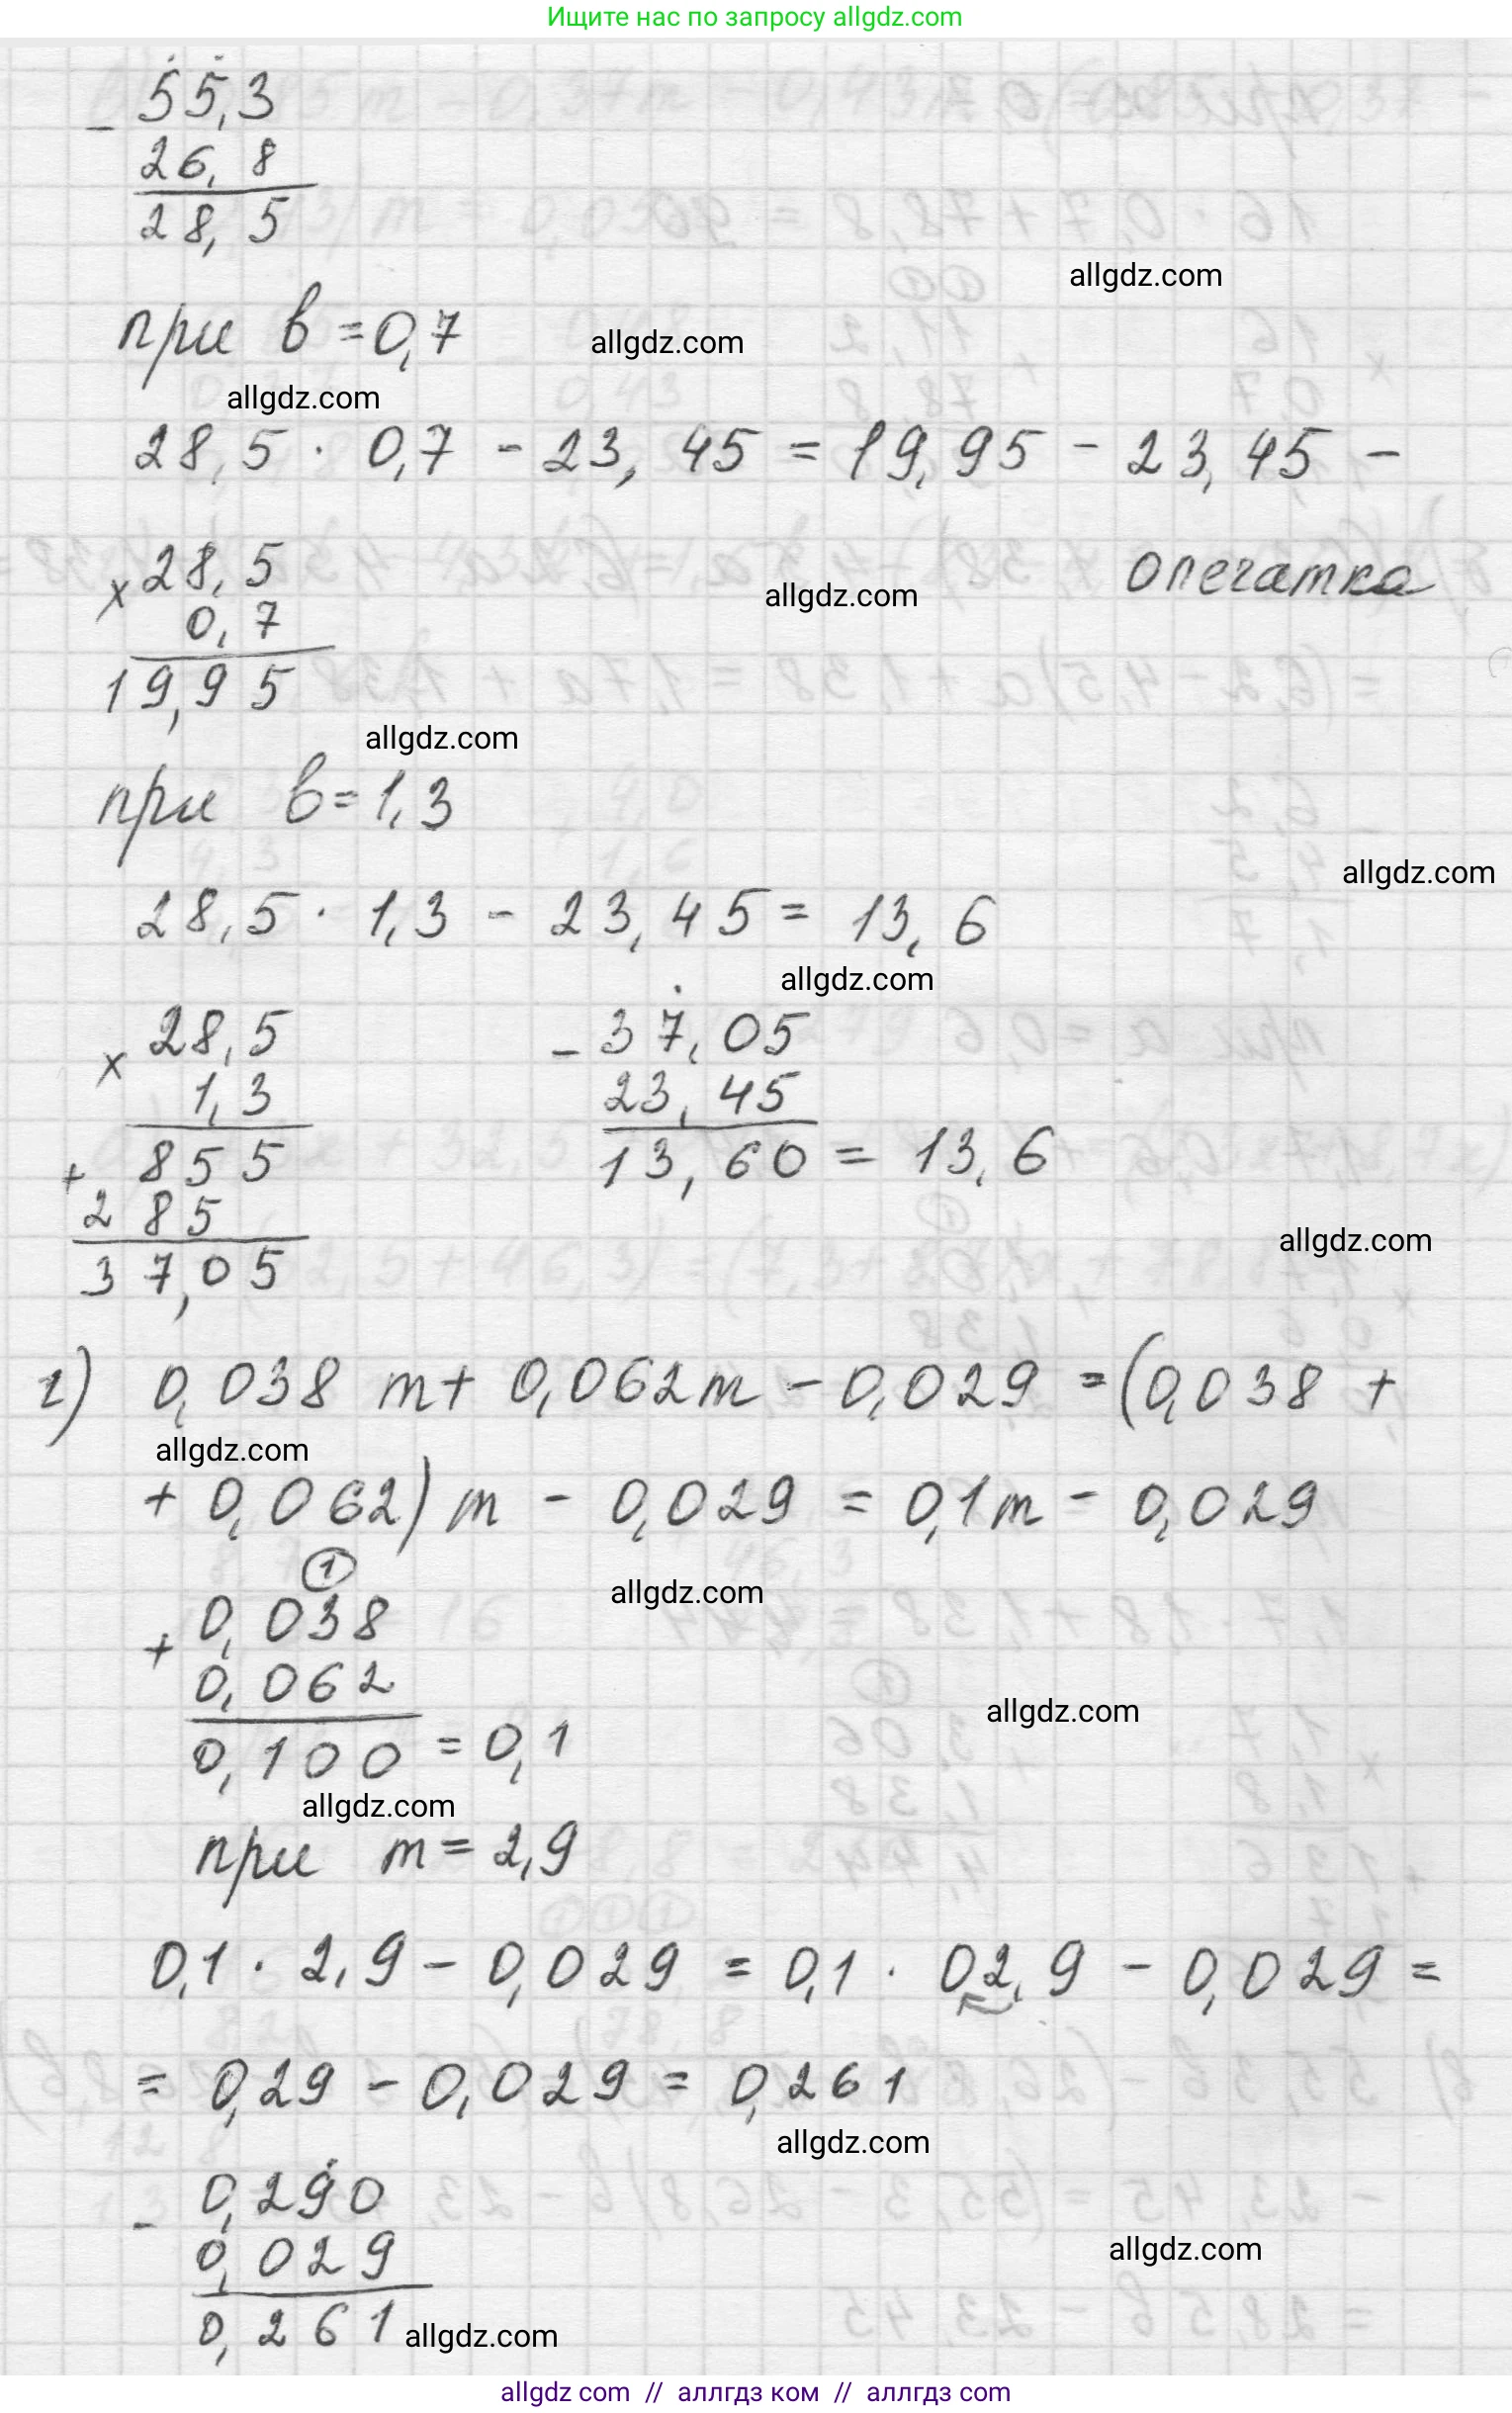 Ищите нас по запросу allgdz.com
55,3
-
26,8
28,5
allgdz.com
при в = 0,7
allgdz.com
allgdz.com
28,5 · 0,7 - 23,45 = 19,95 - 23,45 -
опечатка
× 28,5
0,7
19,95
allgdz.com
allgdz.com
при в = 1,3
allgdz.com
28,5 · 1,3 - 23,45 = 13,6
allgdz.com
× 28,5
1,3
+ 855
285
37,05
- 37,05
23,45
13,60 = 13,6
allgdz.com
г) 0,038 m + 0,062 m - 0,029 = (0,038 +
allgdz.com
+ 0,062) m - 0,029 = 0,1 m - 0,029
1
allgdz.com
+ 0,038
0,062
0,100 = 0,1
allgdz.com
allgdz.com
при m = 2,9
0,1 · 2,9 - 0,029 = 0,1 · 02,9 - 0,029 =
= 0,29 - 0,029 = 0,261
allgdz.com
- 0,290
0,029
0,261
allgdz.com
allgdz.com
allgdz com // аллгдз ком // аллгдз com